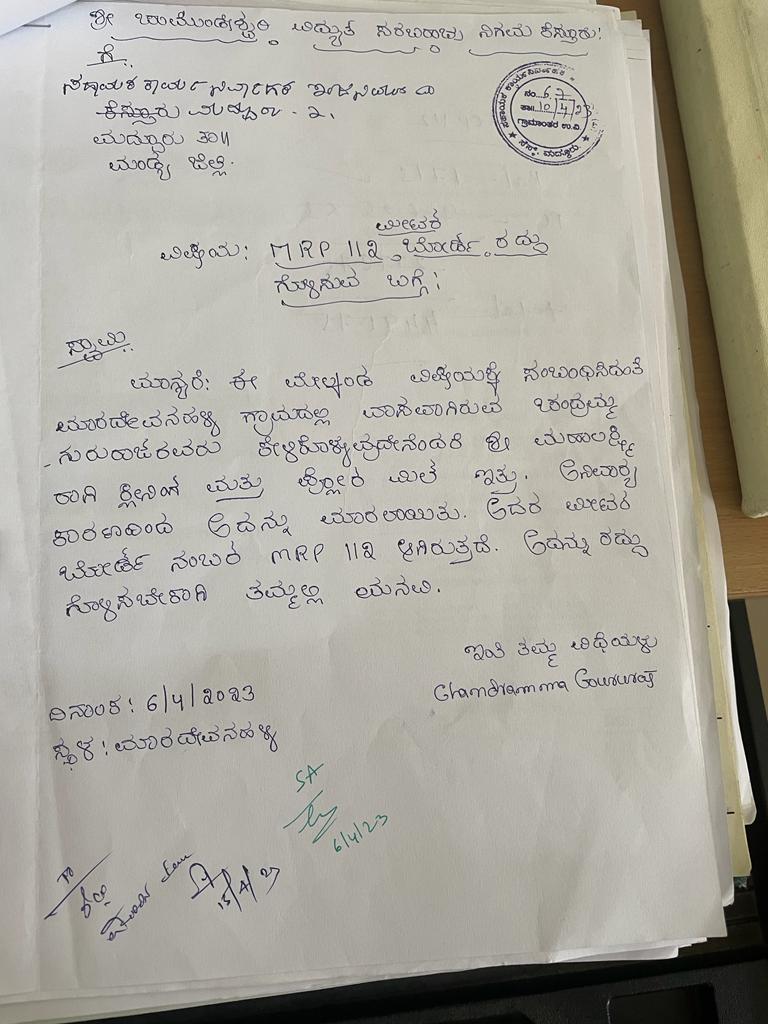 ಶ್ರೀ ಚಾಮುಂಡೇಶ್ವರಿ ವಿದ್ಯುತ್ ಸರಬರಾಜು ನಿಗಮ ಕೆಸ್ತೂರು:
ಗೆ.
ಸಹಾಯಕ ಕಾರ್ಯನಿರ್ವಾಹಕ
ಕೆಸ್ತೂರು
ಮದ್ದೂರು ತಾ॥
ಮಂಡ್ಯ ಜಿಲ್ಲೆ.
ಸಹಾಯಕ ಕಾರ್ಯನಿರ್ವಾಹಕ
ನಂ. 67
ತಾ: 10/4/23
ಗ್ರಾಮಾಂತರ ಉ.ವಿ
ಸೆಸ್ಕ್, ಮದ್ದೂರು
ಮೀಟರ್
ವಿಷಯ: MRP 112 ಬೋರ್ಡ್ ರದ್ದು
ಗೊಳಿಸುವ ಬಗ್ಗೆ:
ಸ್ವಾಮಿ.
ಮಾನ್ಯರೆ: ಈ ಮೇಲ್ಕಂಡ ವಿಷಯಕ್ಕೆ ಸಂಬಂಧಿಸಿದಂತೆ
ಮಾರದೇವನಹಳ್ಳಿ ಗ್ರಾಮದಲ್ಲಿ ವಾಸವಾಗಿರುವ ಚಂದ್ರಮ್ಮ
ಗುರುರಾಜರವರು ಕೇಳಿಕೊಳ್ಳುವುದೇನೆಂದರೆ ಶ್ರೀ ಮಹಾಲಕ್ಷ್ಮಿ
ರಾಗಿ ಕ್ಲೀನಿಂಗ್ ಮತ್ತು ಫ್ಲೋರ್ ಮಿಲ್ ಇತ್ತು. ಅನಿವಾರ್ಯ
ಕಾರಣದಿಂದ ಅದನ್ನು ಮಾರಲಾಯಿತು. ಅದರ ಮೀಟರ್
ಬೋರ್ಡ್ ನಂಬರ್ MRP 112 ಆಗಿರುತ್ತದೆ. ಅದನ್ನು ರದ್ದು
ಗೊಳಿಸಬೇಕಾಗಿ ತಮ್ಮಲ್ಲಿ ಮನವಿ.
ಇತಿ ತಮ್ಮ ವಿಧೆಯಳು
Chandramma Gowuraj
ದಿನಾಂಕ: 6/4/2023
ಸ್ಥಳ: ಮಾರದೇವನಹಳ್ಳಿ
SA
6/4/23
15/4/23